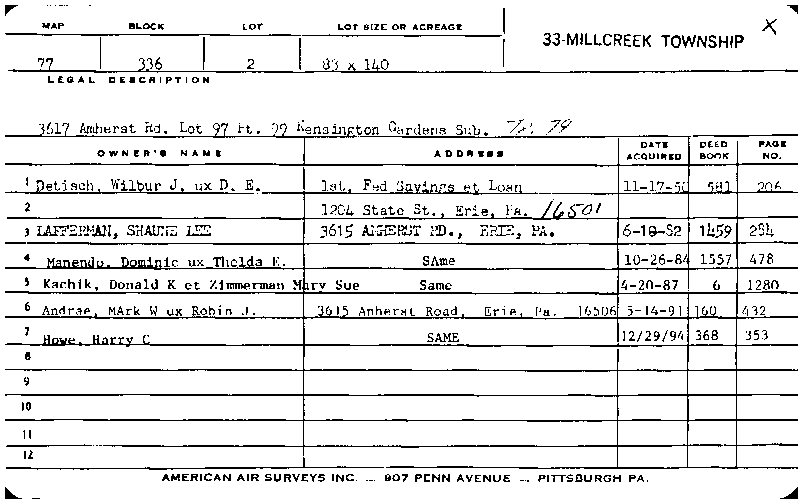 MAP BLOCK LOT LOT SIZE OR ACREAGE
33-MILLCREEK TOWNSHIP X
77 336 2 83 x 140
LEGAL DESCRIPTION
3617 Amherst Rd. Lot 97 Pt. 99 Kensington Gardens Sub. 79
OWNER'S NAME ADDRESS DATE ACQUIRED DEED BOOK PAGE NO.
1 Detisch, Wilbur J. ux D. E. 1st. Fed Savings et Loan 11-17-50 581 206
2 1204 State St., Erie, Pa. 16501
3 LAFFERMAN, SHAUNE LEE 3615 AMHERST RD., ERIE, PA. 6-10-82 1459 254
4 Manendo, Dominic ux Thelda E. SAme 10-26-84 1557 478
5 Kachik, Donald K et Zimmerman Mary Sue Same 4-20-87 6 1280
6 Andrae, MArk W ux Robin J. 3615 Amherst Road, Erie, Pa. 16506 5-14-91 160 432
7 Howe, Harry C SAME 12/29/94 368 353
8
9
10
11
12
AMERICAN AIR SURVEYS INC. — 907 PENN AVENUE — PITTSBURGH PA.